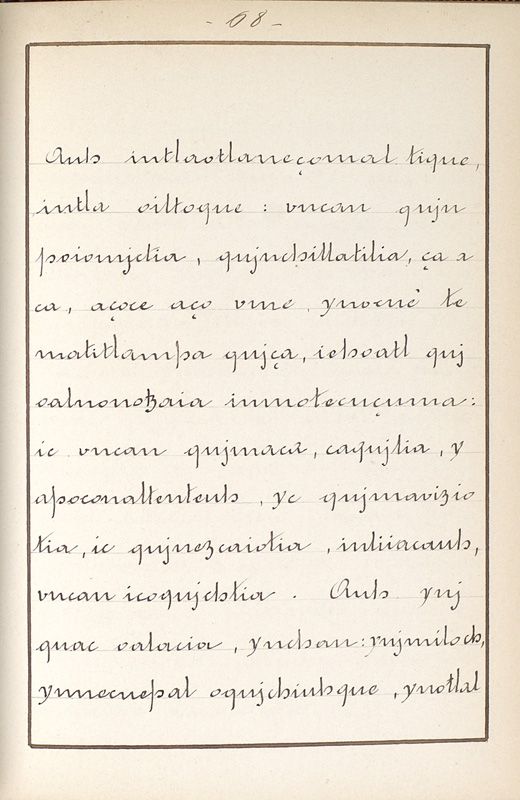 - 68 -
Auh intlaotlaneçomal tique,
intla oiltoque : vncan qujn
poiomjctia, qujnchillatilia, ça a
ca, açoce aço vme, ynocné te
matitlampa qujça, iehoatl quj
oalnonotzaia inmotecuçuma:
ic vncan qujmaca, caqujtia, y
apoconaltenteuh, yc qujmavizio
tia, ic qujnezcaiotia, intiiacauh,
vncan icoqujchtia. Auh ynj
quac oalacia, ynchan: ynjmiloch,
ynnecnepal oqujchiuhque, ynotlal